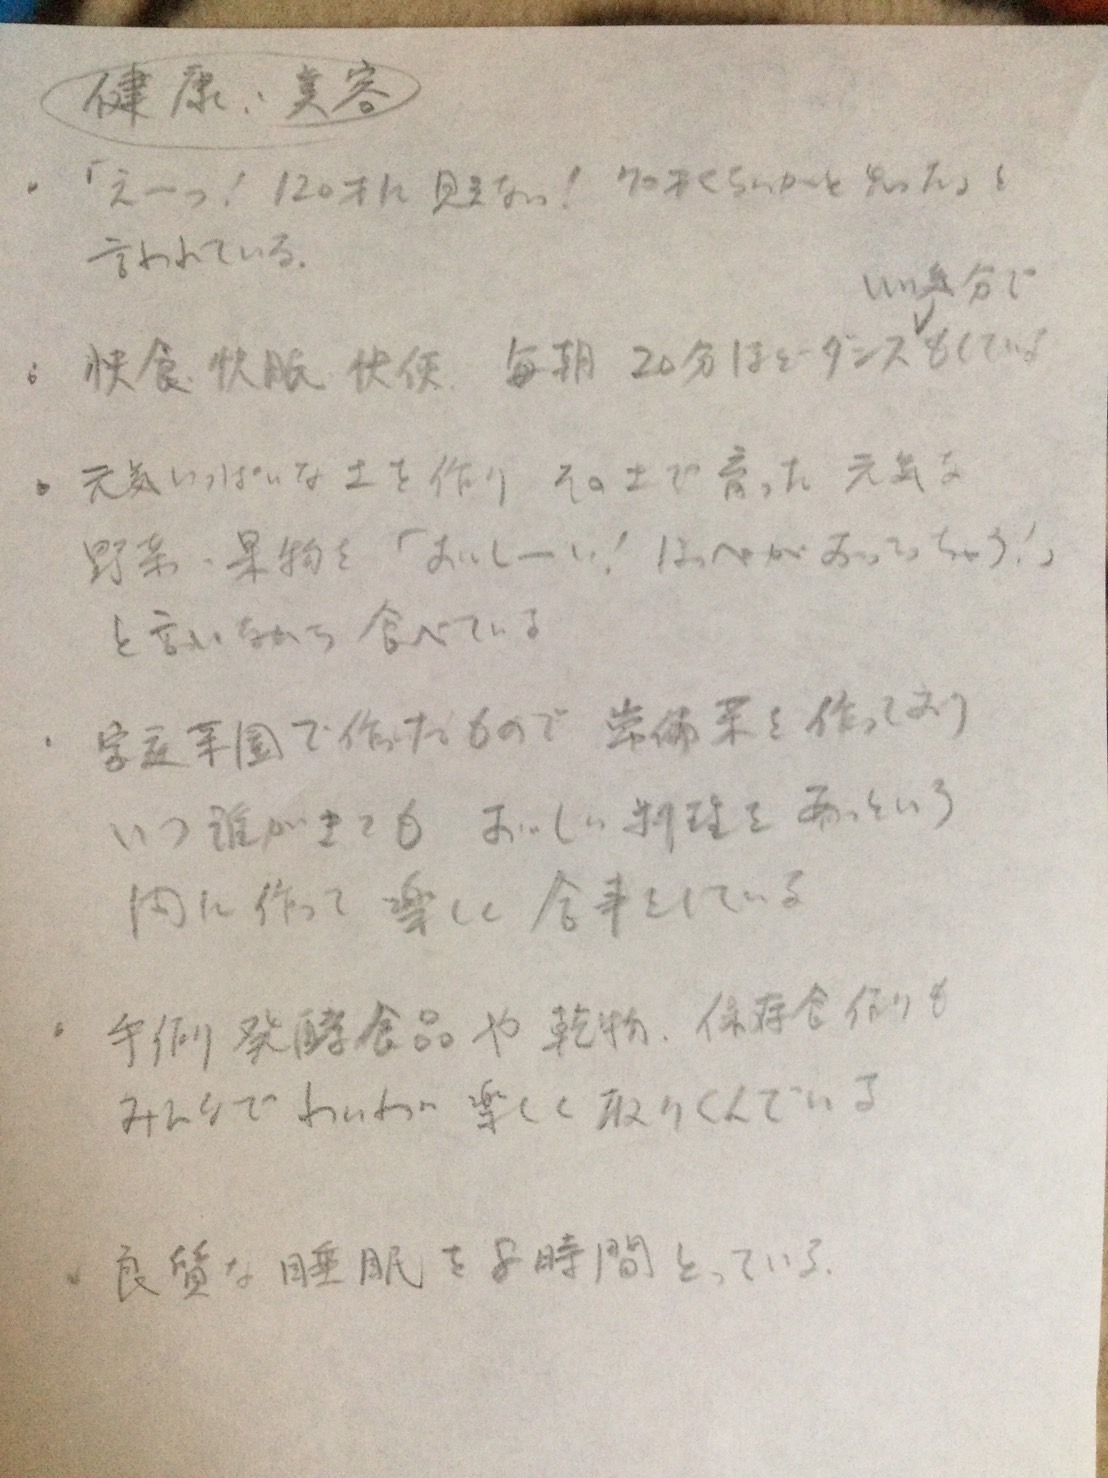 健康・美容
・「えーっ! 120才に見えない! 70才くらいかと思った」と
言われている.
いい気分で
・快食 快眠 快便. 毎朝 20分ほどダンスもしている
・元気いっぱいな土を作り その土で育った 元気な
野菜・果物を「おいしーい! ほっぺがおっこっちゃう!」
と言いながら 食べている
・家庭菜園で作ったもので 常備菜を作っており
いつ誰が来ても おいしい料理をあっという
間に作って 楽しく 食事をしている
・手作り発酵食品や乾物、保存食作りも
みんなで わいわい 楽しく 取りくんでいる
・良質な睡眠を8時間とっている.